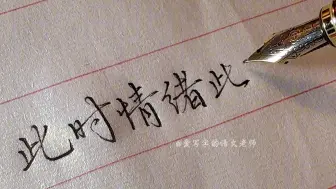 此时情绪此
@爱写字的语文老师